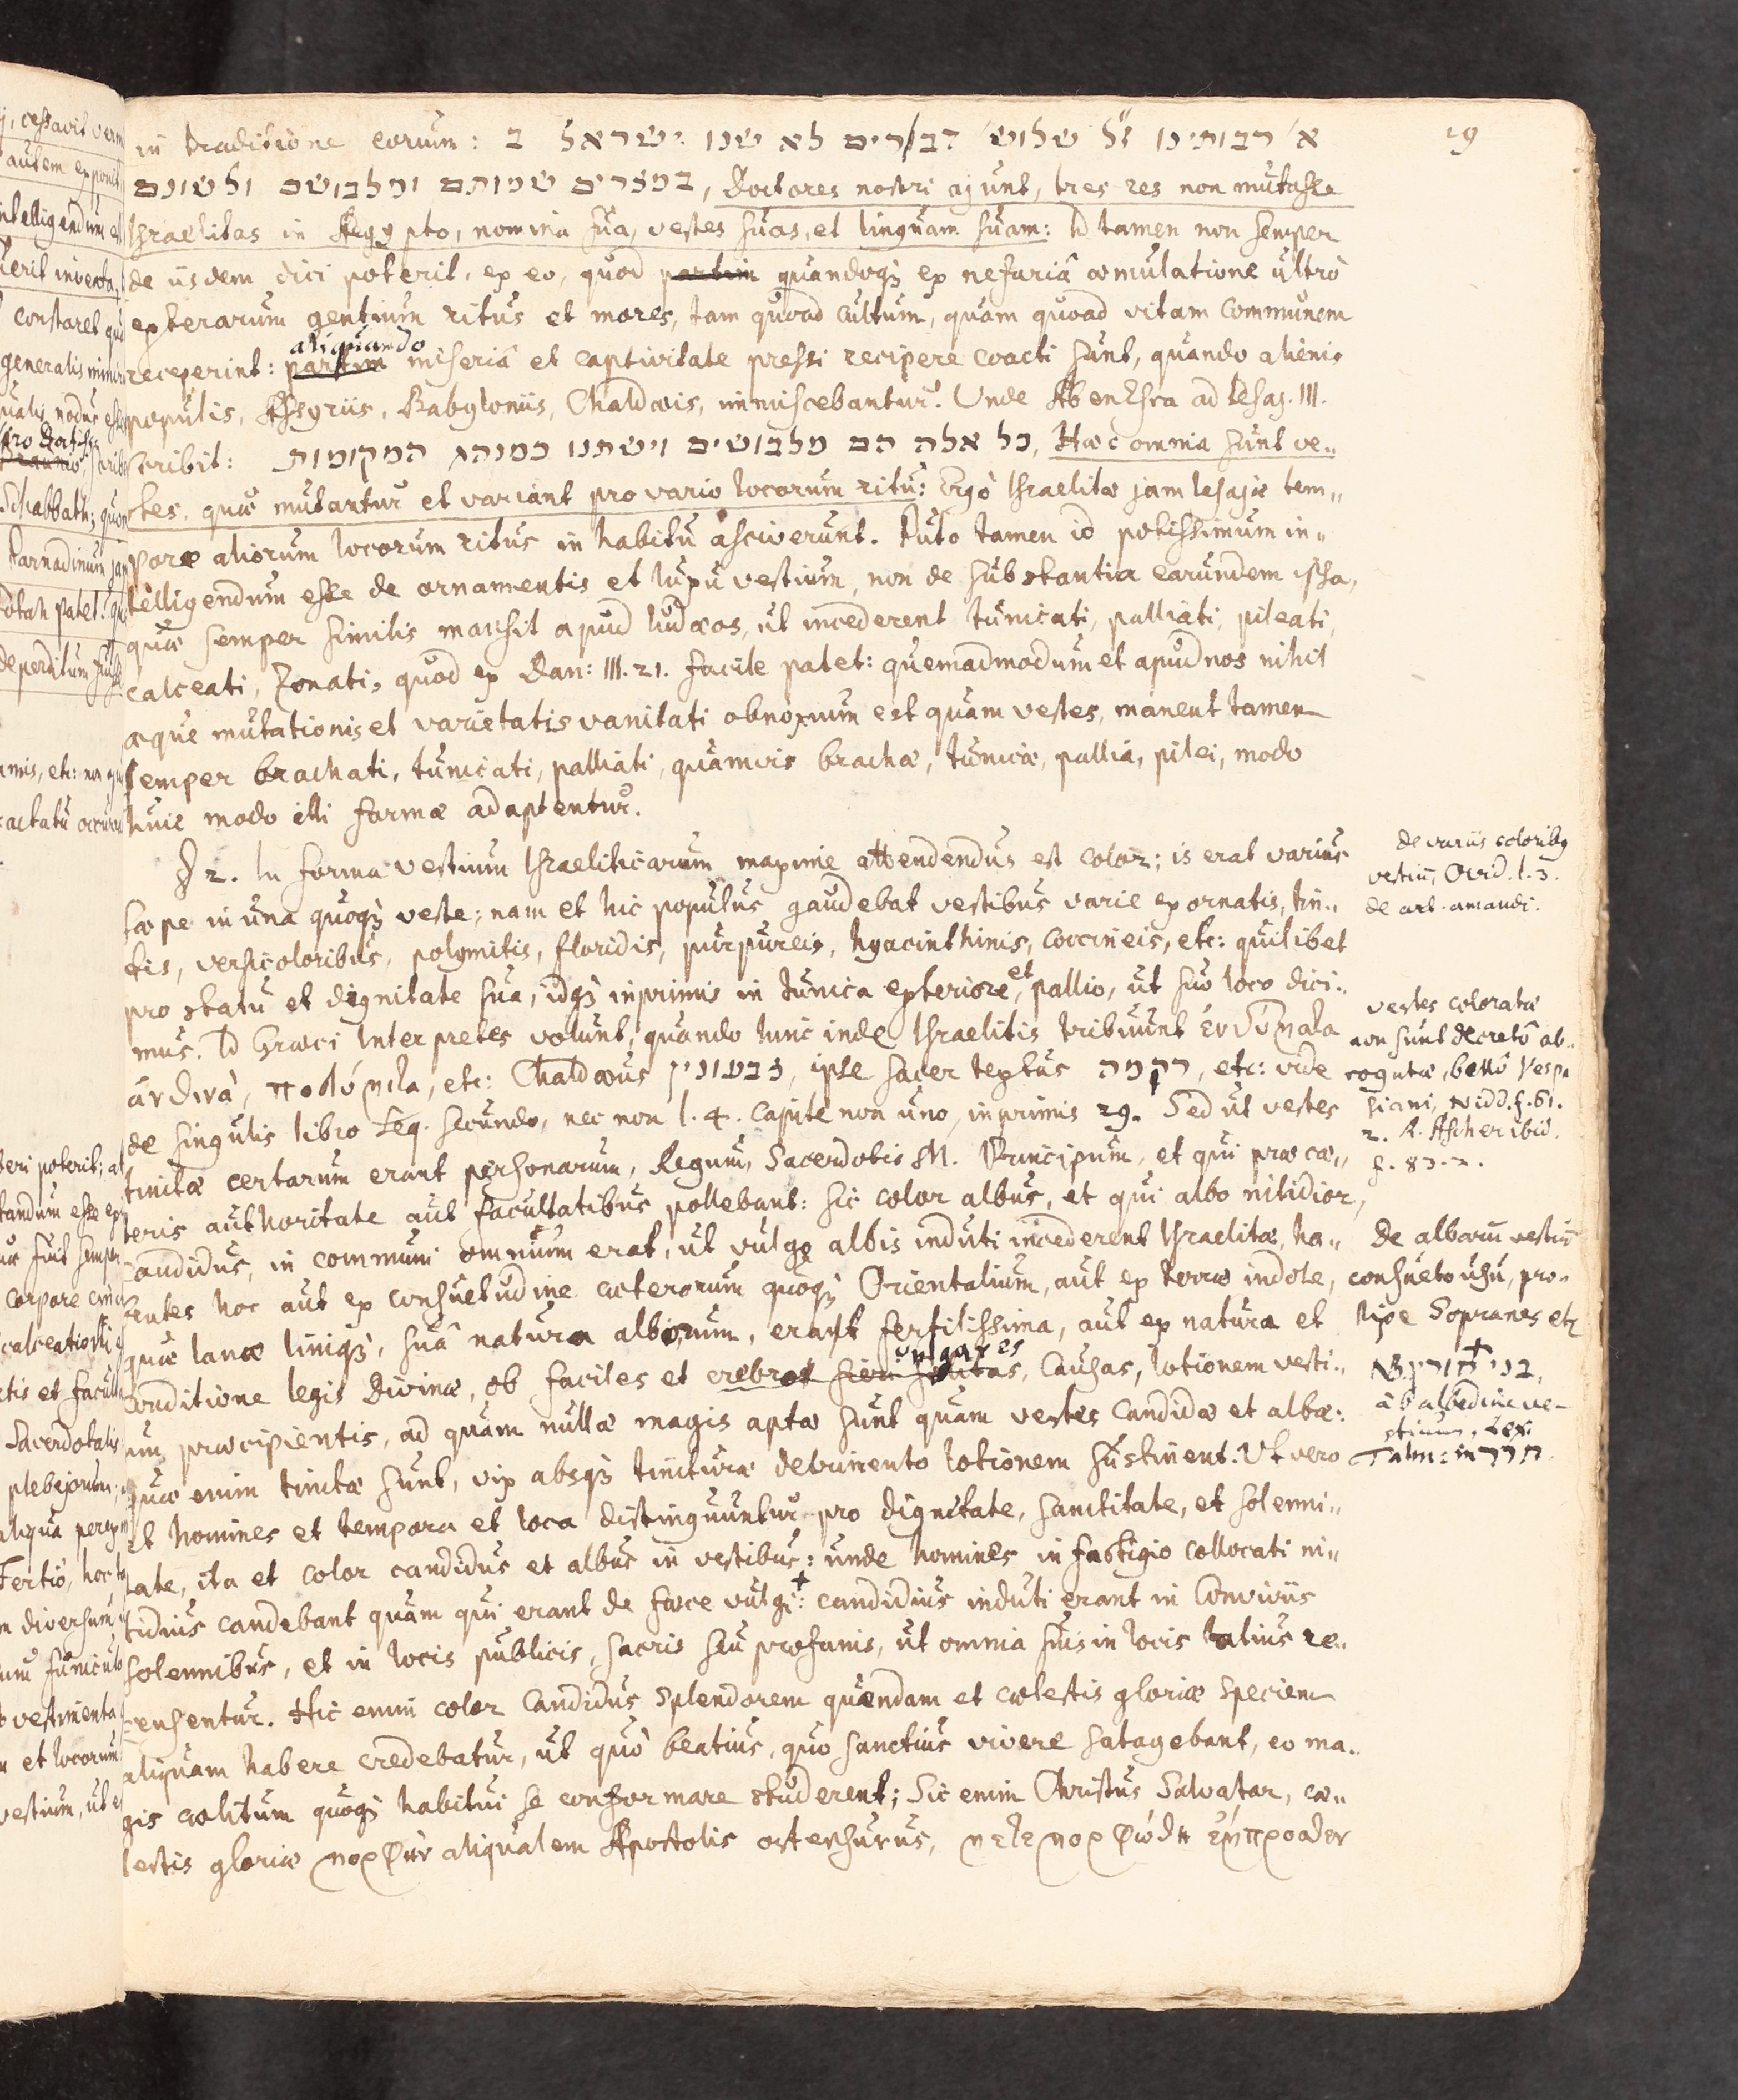 19
in traditione eorum: א׳ רבותינו ז״ל שלוש׳ דברים לא שנו ישראל ב
במצרים שמותם ומלבושם ולשונם, Doctores nostri ajunt, tres res non mutasse
Israelitas in Aegypto, nomina sua, vestes suas, et linguam suam: Id tamen non semper
de iisdem dici poterit, ex eo, quod partim quandoq; ex nefariâ æmulatione ultrò
exterarum gentium ritus et mores, tam quoad cultum, quàm quoad vitam communem
receperint: partim aliquando miseriâ et captivitate pressi recipere coacti sunt, quando alienis
populis, Assyriis, Babyloniis, Chaldæis, immiscebantur. Unde AbenEsra ad Iesaj. III.
scribit: כל אלה הם מלבושים וישתנו כמנהג המקומות, Hæc omnia sunt ve„
stes, quæ mutantur et variant pro vario locorum ritu: Ergò Israelitæ jam Iesajæ tem„
pore aliorum locorum ritus in habitu asciverunt. Puto tamen id potissimum in„
telligendum esse de ornamentis et luxu vestium, non de substantia earundem ipsa,
quæ semper similis mansit apud Iudæos, ut incederent tunicati, palliati, pileati,
calceati, zonati, quod ex Dan: III. 21. facile patet: quemadmodum et apud nos nihil
æque mutationis et varietatis vanitati obnoxium est quàm vestes, manent tamen
semper brachati, tunicati, palliati, quamvis brachæ, tunicæ, pallia, pilei, modo
huic modo illi formæ adaptentur.
§ 2. In forma vestium Israeliticarum maxime attendendus est color; is erat varius
sæpe in una quoq; veste; nam et hic populus gaudebat vestibus varie exornatis, tin„
ctis, versicoloribus, polymitis, floridis, purpureis, hyacinthinis, coccineis, etc: quilibet
pro statu et dignitate sua, idq; inprimis in tunica exteriore, et pallio, ut suo loco dici„
mus. Id Græci Interpretes volunt, quando hinc inde Israelitis tribuunt ἐνδύματα
ἀνθινὰ, πολύμιτα, etc: Chaldæus צבעונין, ipse sacer textus רקמה, etc: vide
de singulis libro seq. secundo, nec non l. 4. capite non uno, inprimis 29. Sed ut vestes
tinctæ certarum erant personarum, Regum, Sacerdotis M. Principum, et qui præ cæ„
teris authoritate aut facultatibus pollebant: sic color albus, et qui albo nitidior,
candidus, in communi omnium erat, ut vulgo albis induti incederent Israelitæ, ha„
bentes hoc aut ex consuetudine cæterorum quoq; Orientalium, aut ex terræ indole,
quæ lanæ liniq;, suâ natura alborum, erat fertilissima, aut ex natura et
conditione legis Divinæ, ob faciles et crebras fieri solitas vulgares, causas, lotionem vesti„
um præcipientis, ad quam nullæ magis aptæ sunt quam vestes candidæ et albæ:
quæ enim tinctæ sunt, vix absq; tincturæ detrimento lotionem sustinent. Ut vero
et homines et tempora et loca distinguuntur pro dignitate, sanctitate, et solenni„
tate, ita et color candidus et albus in vestibus: unde homines in fastigio collocati ni„
tidius candebant quàm qui erant de fæce vulgi:+ candidius induti erant in Conviviis
solennibus, et in locis publicis, sacris seu profanis, ut omnia suis in locis latius re„
censentur. Hic enim color candidus splendorem quendam et cælestis gloriæ speciem
aliquam habere credebatur, ut quò beatius, quo sanctius vivere satagebant, eo ma„
gis cælitum quoq; habitui se conformare studerent; Sic enim Christus Salvator, cæ„
lestis gloriæ μορφὴν aliqualem Apostolis ostensurus, μετεμορφώθη ἔμπροσθεν
de variis coloribq
vestiū, Ovid. l. 3.
de art. amandi.
vestes coloratæ
non sunt decretô ab„
rogatæ, bellô Vespa
siani, Nidd. f. 61.
2. R. Ascher ibid.
f. 83. 2.
De albarū vestiū
consueto usu, pro„
lixe Sopranes etc
+
בני חורין.
ab albedine ve-
stium, Lex.
Talm: in חרר.